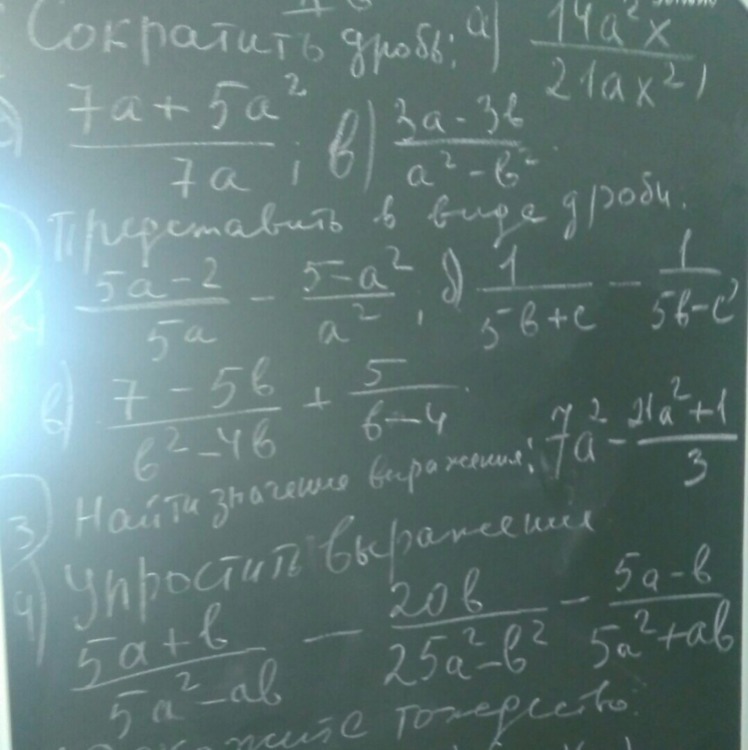 Сократить дробь: а) 14a²x / 21ax²,
7a + 5a² / 7a ; в) 3a - 3b / a² - b².
Представить в виде дроби.
а) 5a - 2 / 5a - 5 - a² / a² , б) 1 / 5b + c - 1 / 5b - c
в) 7 - 5b / b² - 4b + 5 / b - 4
3) Найти значение выражения: 7a² - 21a² + 1 / 3
4) Упростить выражения
5a + b / 5a² - ab - 20b / 25a² - b² - 5a - b / 5a² + ab
тождество: